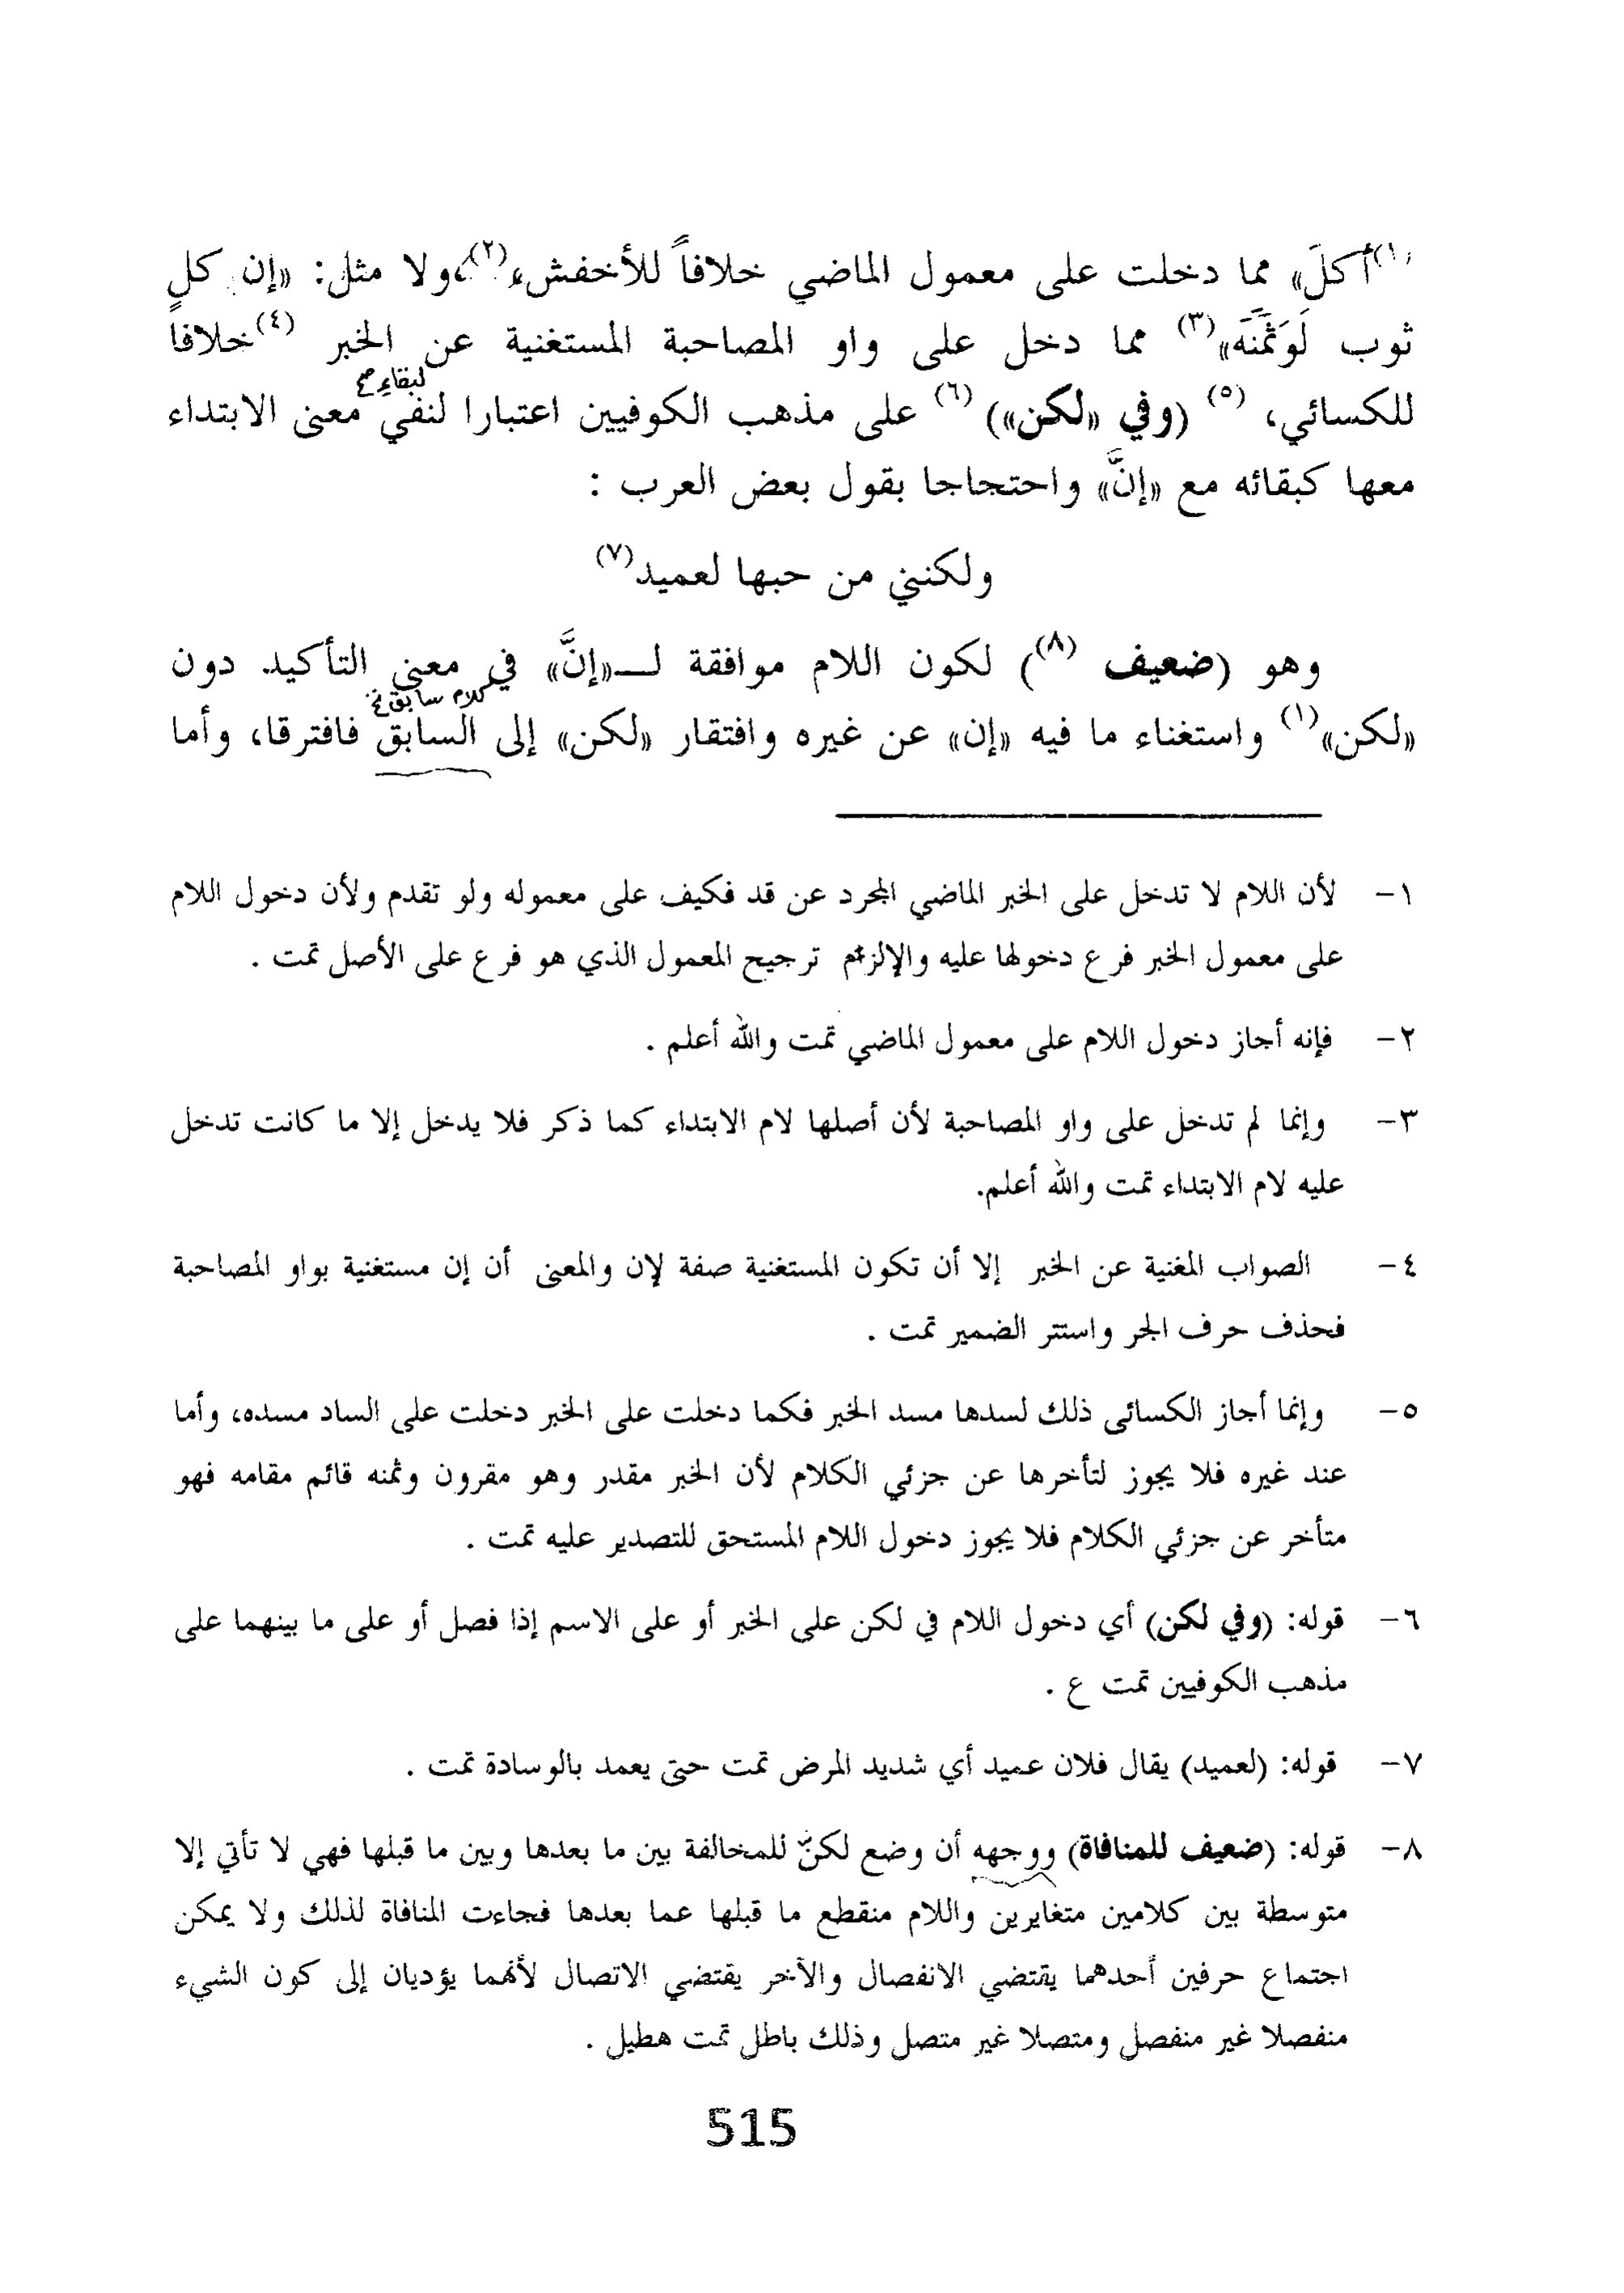 (١)أكلَ» مما دخلت على معمول الماضي خلافاً للأخفش،(٢) ولا مثل: «إن كل
ثوب لَوَثَمَنَه»(٣) مما دخل على واو المصاحبة المستغنية عن الخبر (٤)خلافا
لبقاء صح
للكسائي، (٥) (وفي «لكن») (٦) على مذهب الكوفيين اعتبارا لنفي معنى الابتداء
معها كبقائه مع «إنَّ» واحتجاجا بقول بعض العرب :
ولكنني من حبها لعميد(٧)
وهو (ضعيف (٨)) لكون اللام موافقة لـ«إنَّ» في معنى التأكيد دون
كلام سابق نخ
«لكن»(١) واستغناء ما فيه «إن» عن غيره وافتقار «لكن» إلى السابق فافترقا، وأما
١- لأن اللام لا تدخل على الخبر الماضي المجرد عن قد فكيف على معموله ولو تقدم ولأن دخول اللام
على معمول الخبر فرع دخولها عليه والإلزم ترجيح المعمول الذي هو فرع على الأصل تمت .
٢- فإنه أجاز دخول اللام على معمول الماضي تمت والله أعلم .
٣- وإنما لم تدخل على واو المصاحبة لأن أصلها لام الابتداء كما ذكر فلا يدخل إلا ما كانت تدخل
عليه لام الابتداء تمت والله أعلم.
٤- الصواب المغنية عن الخبر إلا أن تكون المستغنية صفة لإن والمعنى أن إن مستغنية بواو المصاحبة
فحذف حرف الجر واستتر الضمير تمت .
٥- وإنما أجاز الكسائي ذلك لسدها مسد الخبر فكما دخلت على الخبر دخلت على الساد مسده، وأما
عند غيره فلا يجوز لتأخرها عن جزئي الكلام لأن الخبر مقدر وهو مقرون وثمنه قائم مقامه فهو
متأخر عن جزئي الكلام فلا يجوز دخول اللام المستحق للتصدير عليه تمت .
٦- قوله: (وفي لكن) أي دخول اللام في لكن على الخبر أو على الاسم إذا فصل أو على ما بينهما على
مذهب الكوفيين تمت ع .
٧- قوله: (لعميد) يقال فلان عميد أي شديد المرض تمت حتى يعمد بالوسادة تمت .
٨- قوله: (ضعيف للمنافاة) ووجهه أن وضع لكنّ للمخالفة بين ما بعدها وبين ما قبلها فهي لا تأتي إلا
متوسطة بين كلامين متغايرين واللام منقطع ما قبلها عما بعدها فجاءت المنافاة لذلك ولا يمكن
اجتماع حرفين أحدهما يقتضي الانفصال والآخر يقتضي الاتصال لأنهما يؤديان إلى كون الشيء
منفصلا غير منفصل ومتصلا غير متصل وذلك باطل تمت هطيل .
515